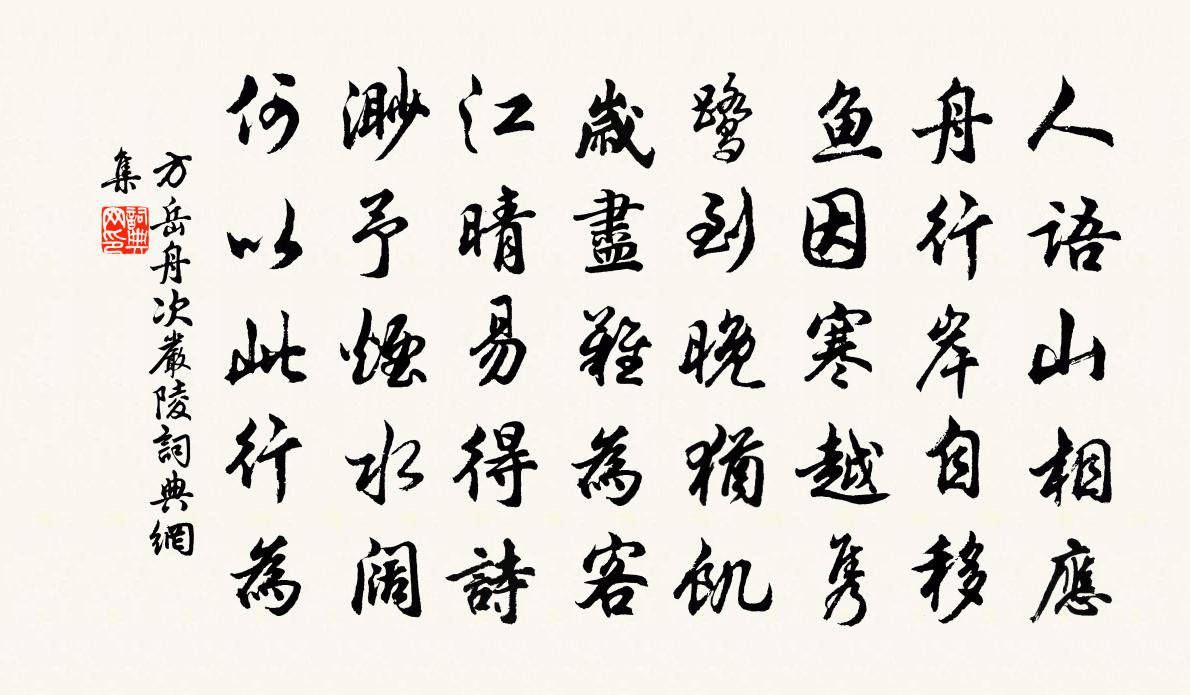 人語山相應
舟行岸自移
鱼因寒越隽
鷺到晚猶飢
歲盡難為客
江晴易得詩
渺予煙水闊
何以此行為
方岳舟次嚴陵詞典網
集
詞典
网印